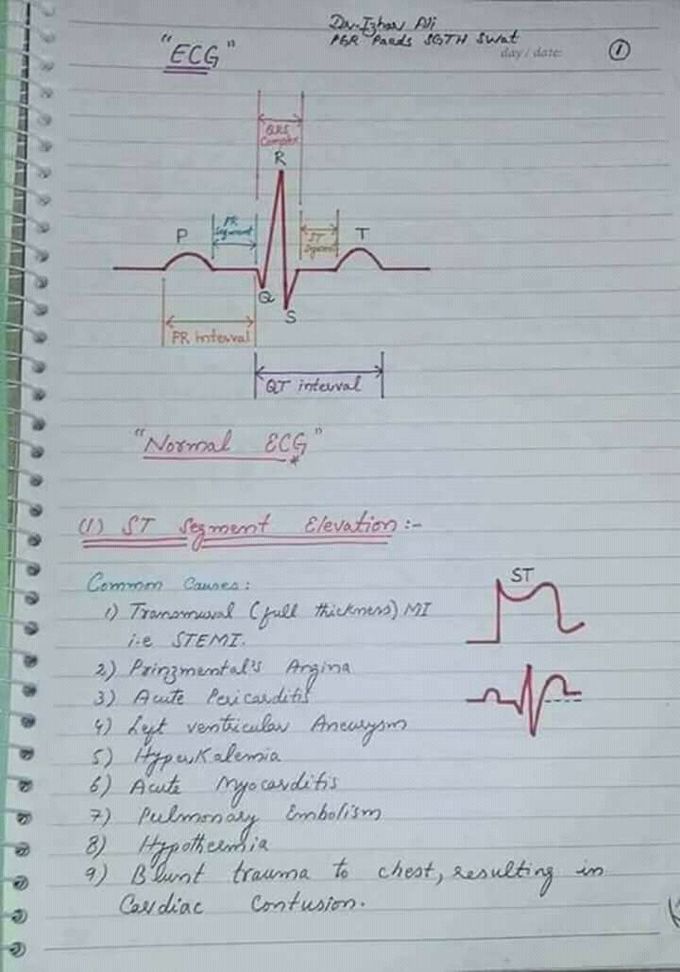 Dr. Izhar Ali
PGR Paeds SGTH Swat
day / date:
1
"ECG"
QRS
Complex
R
P
PR
Segment
ST
Segment
T
Q
S
PR interval
QT interval
"Normal ECG"
(1) ST Segment Elevation :-
Common Causes :
ST
1) Transmural (full thickness) MI
i.e STEMI.
2) Prinzmental's Angina
3) Acute Pericarditis
4) Left ventricular Aneurysm
5) HyperKalemia
6) Acute Myocarditis
7) Pulmonary Embolism
8) Hypothermia
9) Blunt trauma to chest, resulting in
Cardiac Contusion.